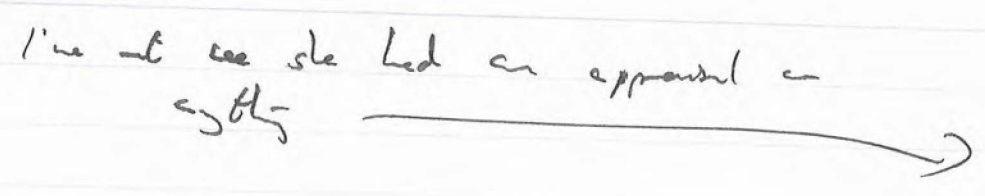 I've not see she had an appraisal on
anything